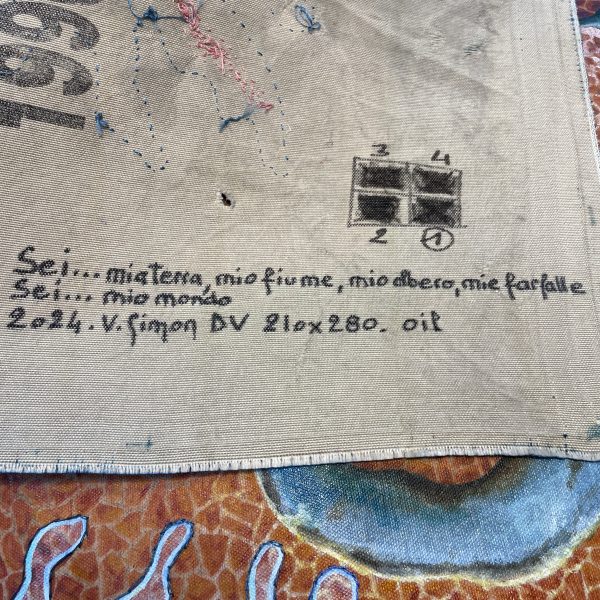 1990
3 4
2 1
Sei... mia terra, mio fiume, mio albero, mie farfalle
Sei... mio mondo
2024. V. Simon DV 210x280. oil